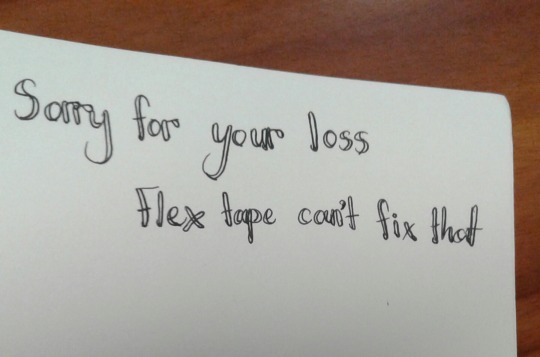 Sorry for your loss
Flex tape can't fix that